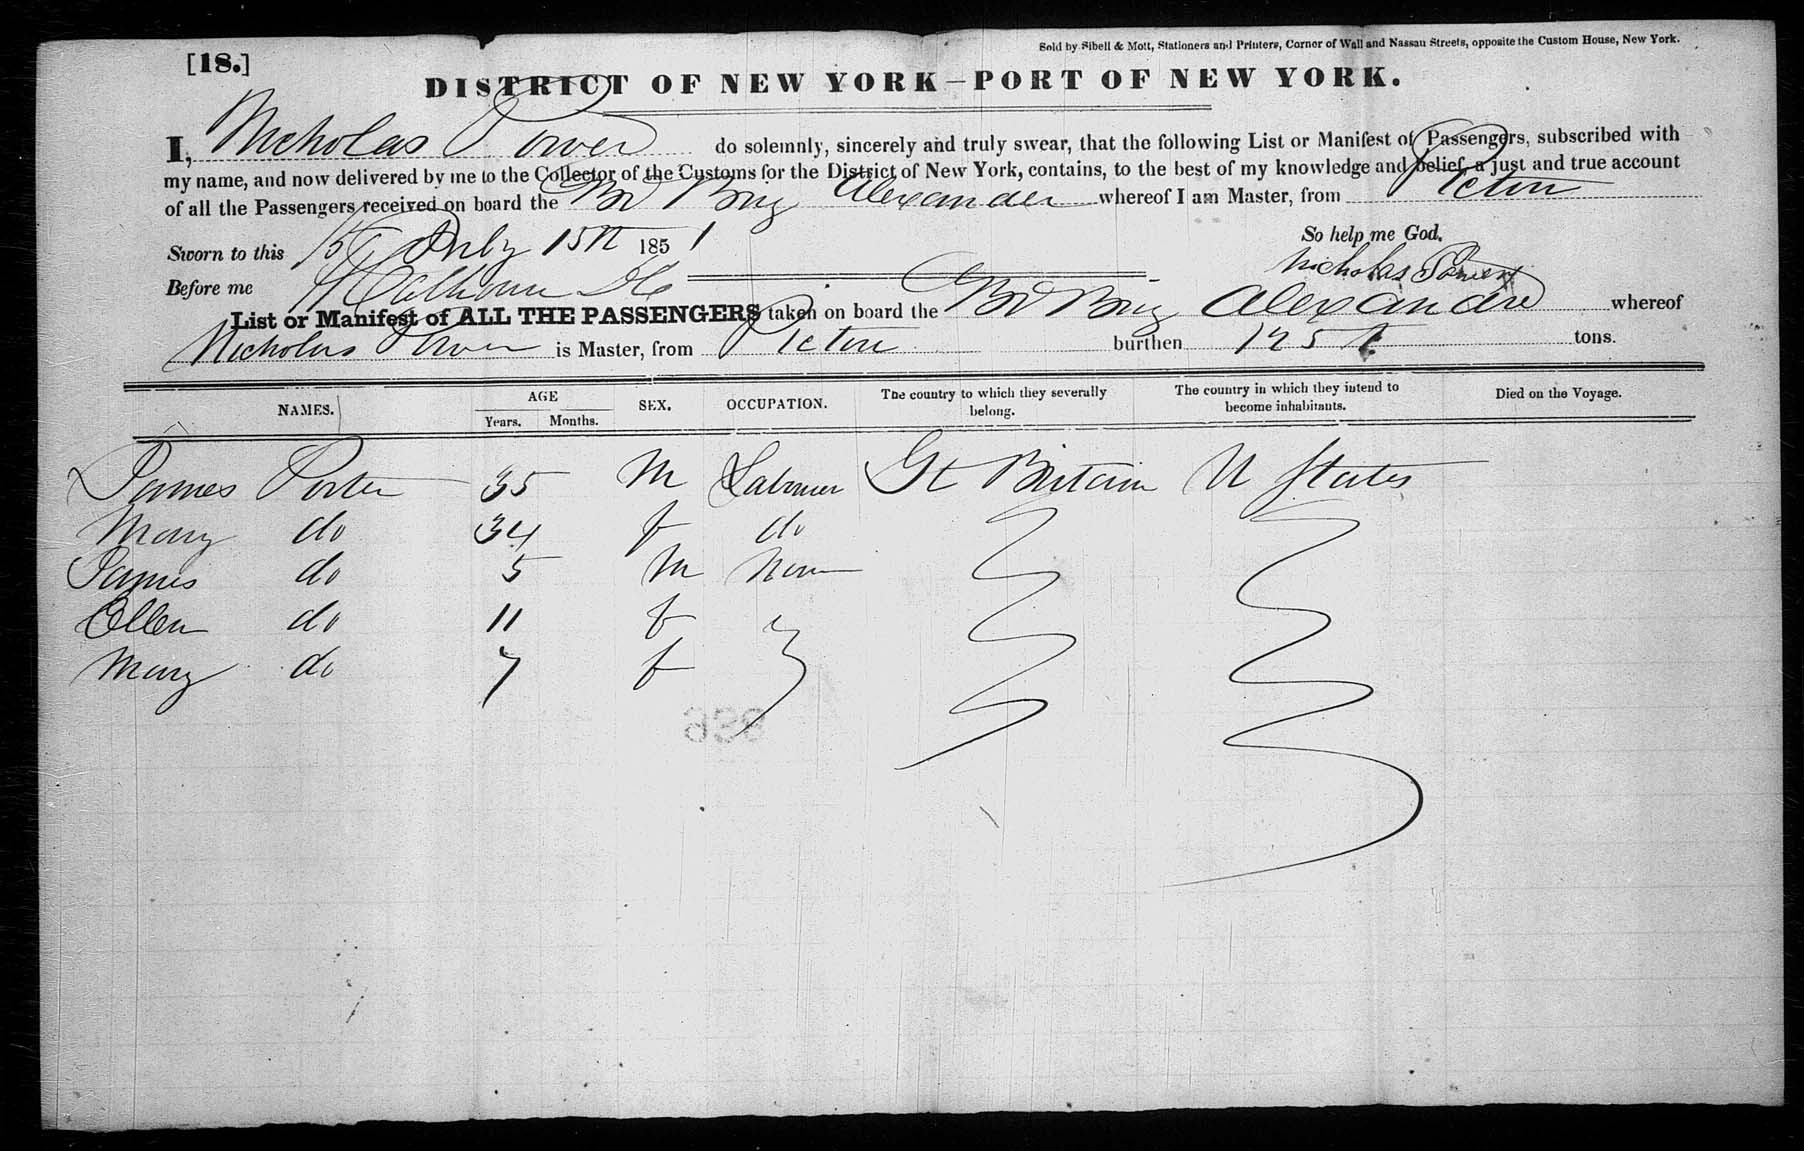 [18.]
Sold by Sibell & Mott, Stationers and Printers, Corner of Wall and Nassau Streets, opposite the Custom House, New York.
DISTRICT OF NEW YORK—PORT OF NEW YORK.
I, Nicholas Power do solemnly, sincerely and truly swear, that the following List or Manifest of Passengers, subscribed with
my name, and now delivered by me to the Collector of the Customs for the District of New York, contains, to the best of my knowledge and belief, a just and true account
of all the Passengers received on board the Br Brig Alexander whereof I am Master, from Pictou
Sworn to this 15 July 15th 1851
So help me God.
Before me
Nicholas Power
List or Manifest of ALL THE PASSENGERS taken on board the Br Brig Alexandre whereof
Nicholas Power is Master, from Pictou burthen 125 tons.
NAMES. AGE SEX. OCCUPATION. The country to which they severally belong. The country in which they intend to become inhabitants. Died on the Voyage.
Years. Months.
James Porter 35 M Labourer Gt Britain U States
Mary do 34 f do
James do 5 M none
Ellen do 11 f
Mary do 7 f